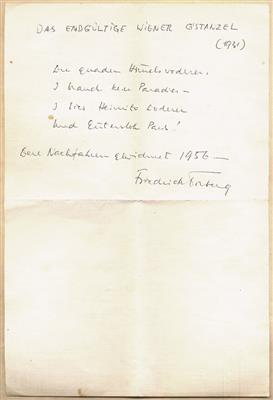 DAS ENDGÜLTIGE WIENER GSTANZEL
(1931)
Du guader Himmelvoderer,
I brauch kein Paradies –
I lies Heimito Doderer
Und Gütersloh Paris!
Nachfahren gewidmet 1956 –
Friedrich Torberg